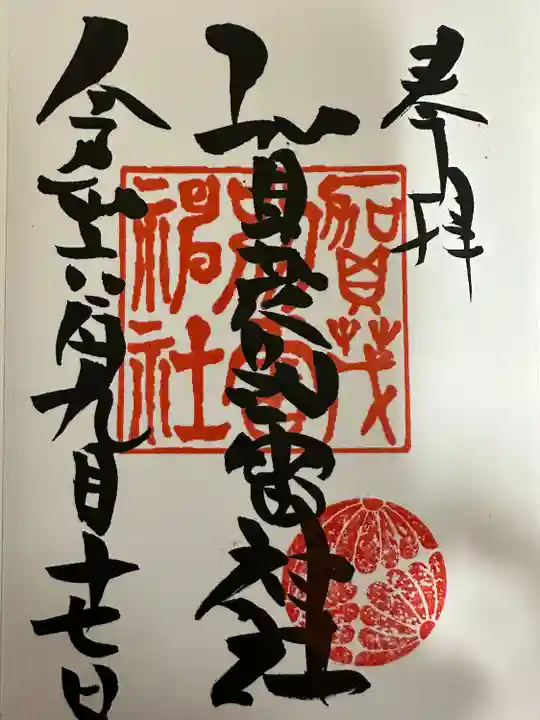 奉拝
賀茂別雷神社
令和六年九月十七日
賀茂
神社